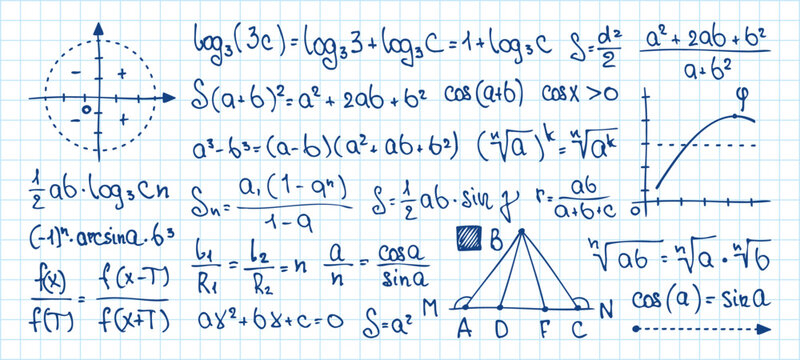 log₃(3c)=log₃3+log₃C=1+log₃C
S=d²/2
(a²+2ab+b²)/(a+b²)
- +
- +
o
S(a+b)²=a²+2ab+b²
cos(a+b)
cosx>0
φ
a³-b³=(a-b)(a²+ab+b²)
(ⁿ√a)ᵏ=ⁿ√aᵏ
o
1/2 ab·log₃Cn
Sₙ=a,(1-qⁿ)/1-q
S=1/2 ab·sin γ
r=ab/(a+b+c)
(-1)ⁿ·arcsina·b³
b₁/R₁=b₂/R₂=n
a/n=cosa/sina
B
ⁿ√ab=ⁿ√a·ⁿ√b
f(x)/f(T)=f(x-T)/f(x+T)
ax²+bx+c=0
S=a²
M N
A D F C
cos(a)=sina